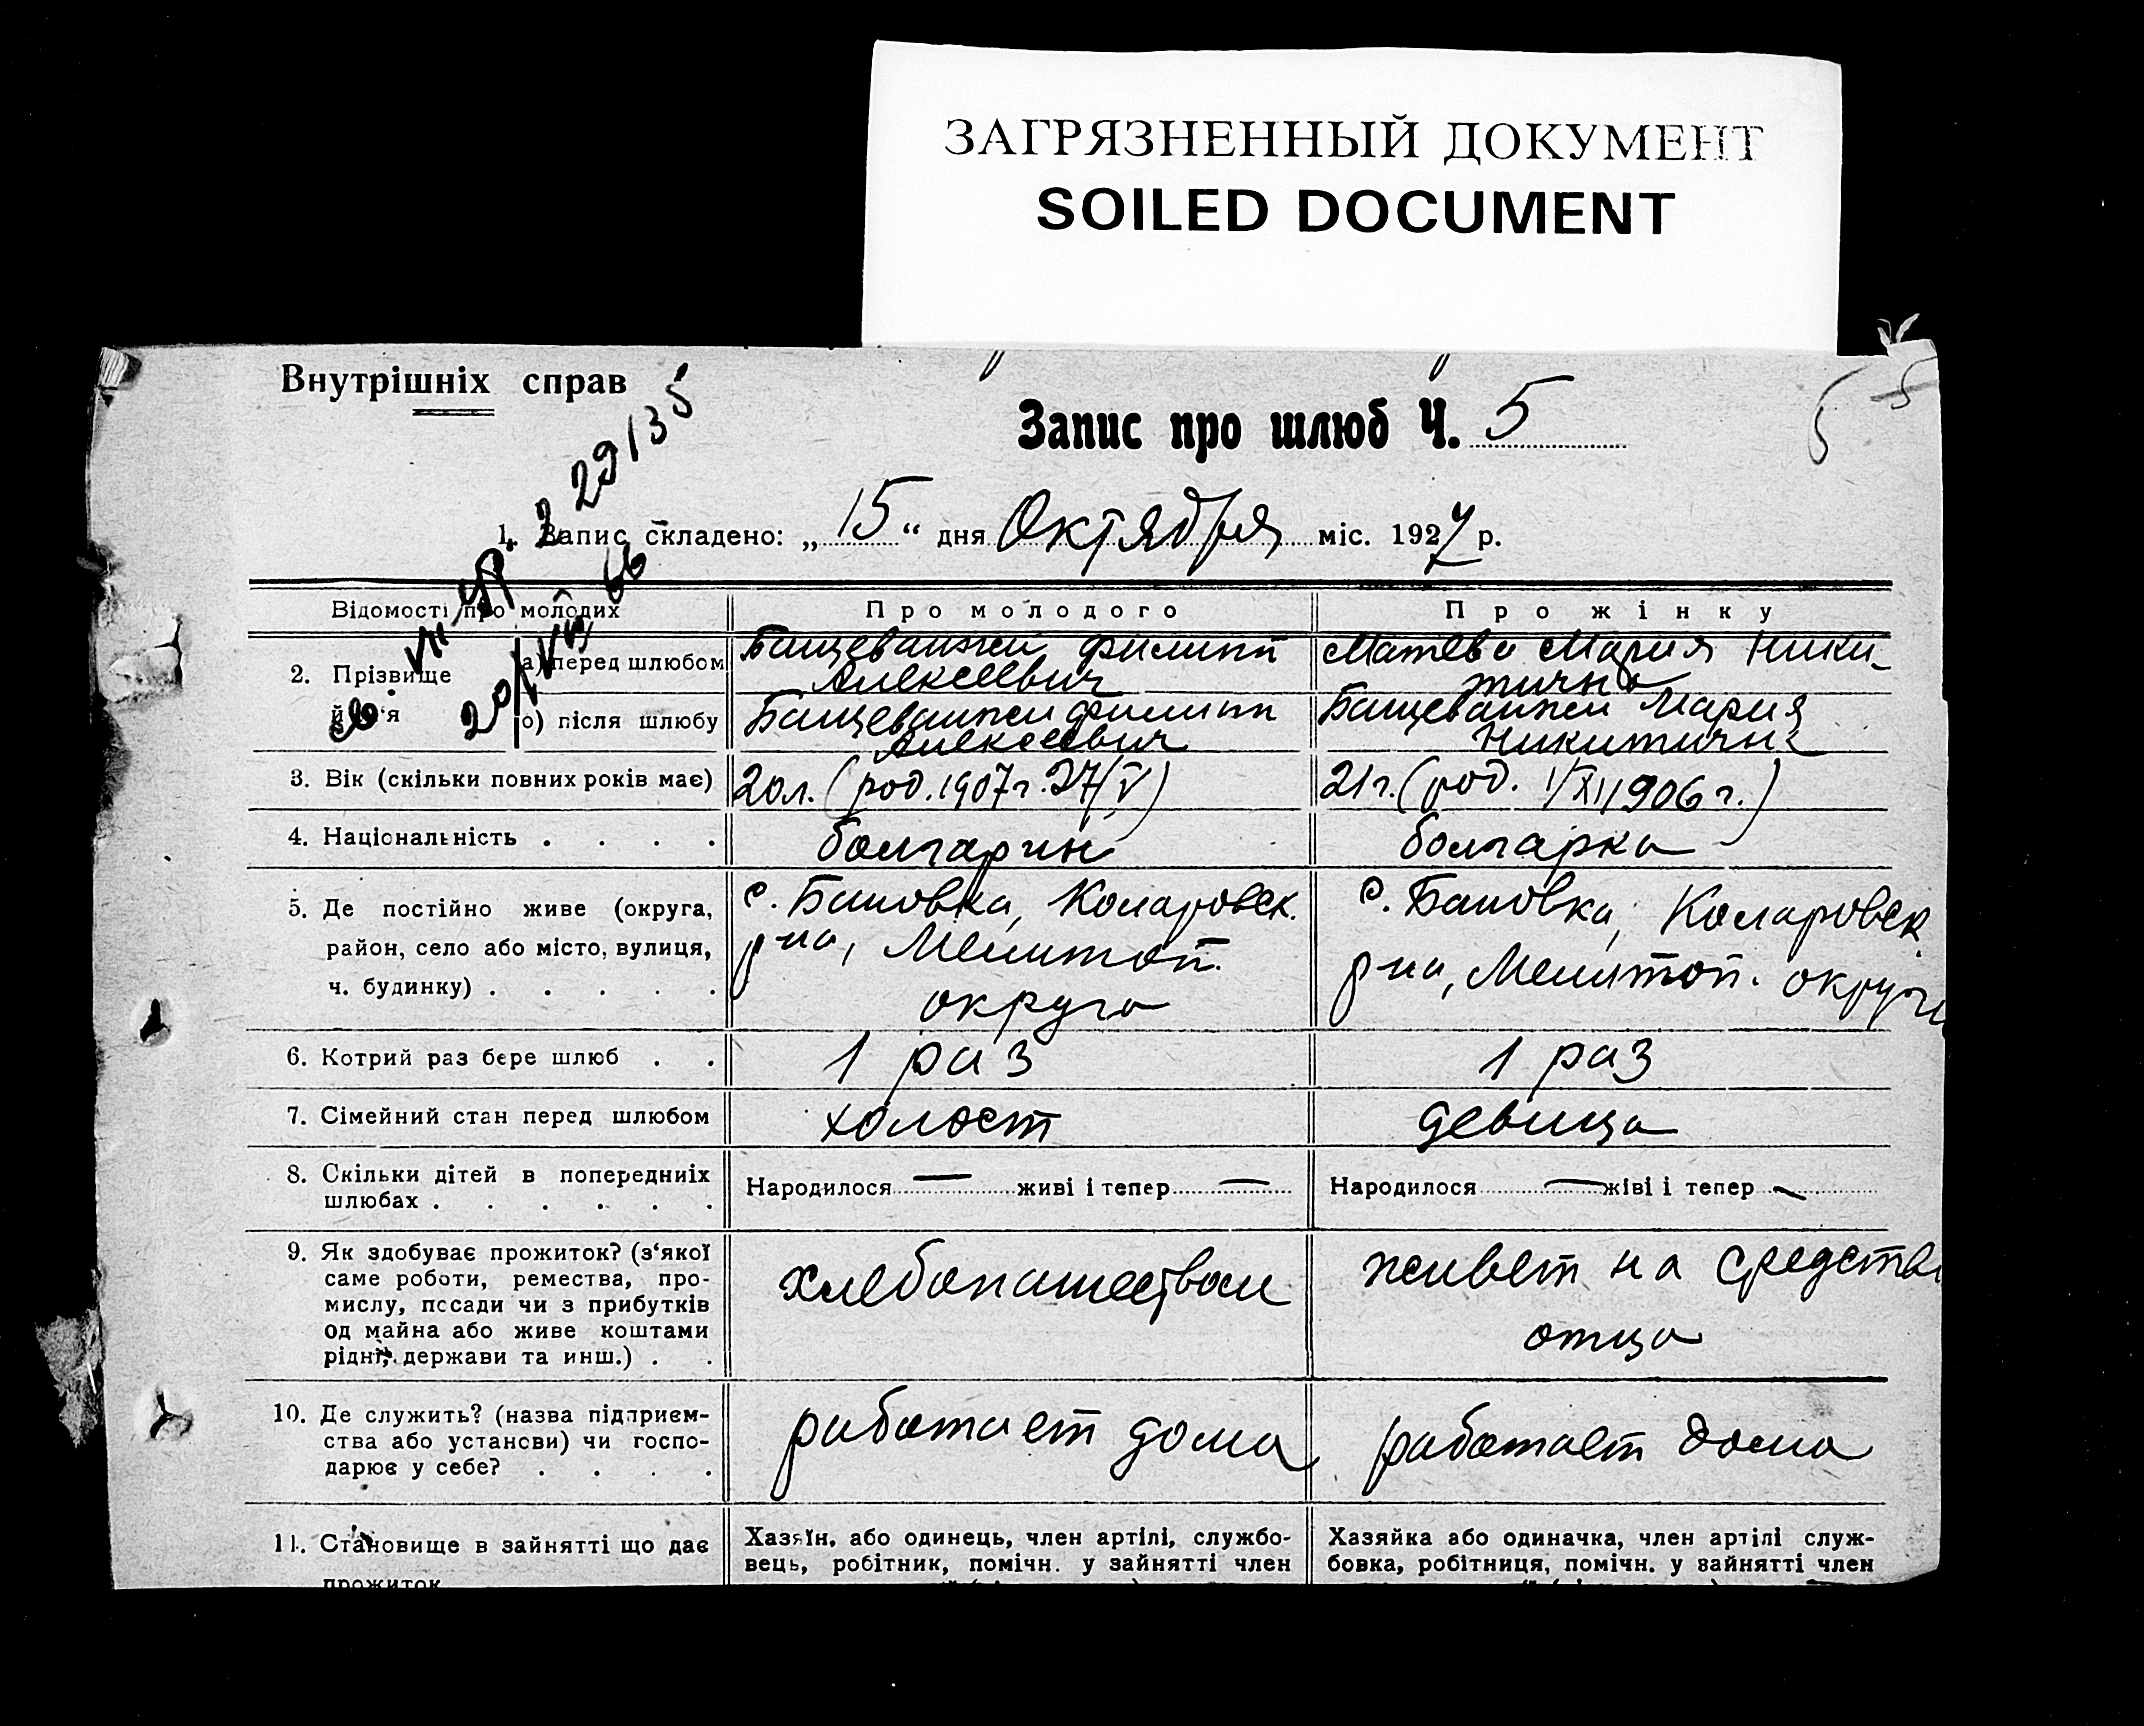 ЗАГРЯЗНЕННЫЙ ДОКУМЕНТ
SOILED DOCUMENT
Внутрішніх справ
5
Запис про шлюб Ч. 5
29135
1. Запис складено: „ 15 “ дня Октября міс. 1927 р.
Відомості про молодих
Про молодого
Про жінку
2. Прізвище
й ім‘я
а) перед шлюбом
Филипп
Алексеевич
Мария Ники-
тична
о) після шлюбу
Филипп
Алексеевич
Мария
Никитична
3. Вік (скільки повних років має)
20 л. (род. 1907 г. 27/V)
21 г. (род. 1/XI 1906 г.)
4. Національність . . . .
болгарин
болгарка
5. Де постійно живе (округа,
район, село або місто, вулиця,
ч. будинку) . . . . .
с. Бановка, Коларовск.
р-на, Мелитоп.
округа
с. Бановка, Коларовск
р-на, Мелитоп. округа
6. Котрий раз бере шлюб . .
1 раз
1 раз
7. Сімейний стан перед шлюбом
холост
девица
8. Скільки дітей в попередниіх
шлюбах . . . . . .
Народилося — живі і тепер —
Народилося — жіві і тепер —
9. Як здобуває прожиток? (з‘якої
саме роботи, ремества, про-
мислу, посади чи з прибутків
од майна або живе коштами
рідні, держави та инш.) . .
хлебопашеством
живет на средства
отца
10. Де служить? (назва підприєм-
ства або установи) чи госпо-
дарює у себе? . . . .
работает дома
работает дома
11. Становище в зайнятті що дає
прожиток
Хазяїн, або одинець, член артілі, службо-
вець, робітник, помічн. у зайнятті член
Хазяйка або одиначка, член артілі служ-
бовка, робітниця, помічн. у зайнятті член